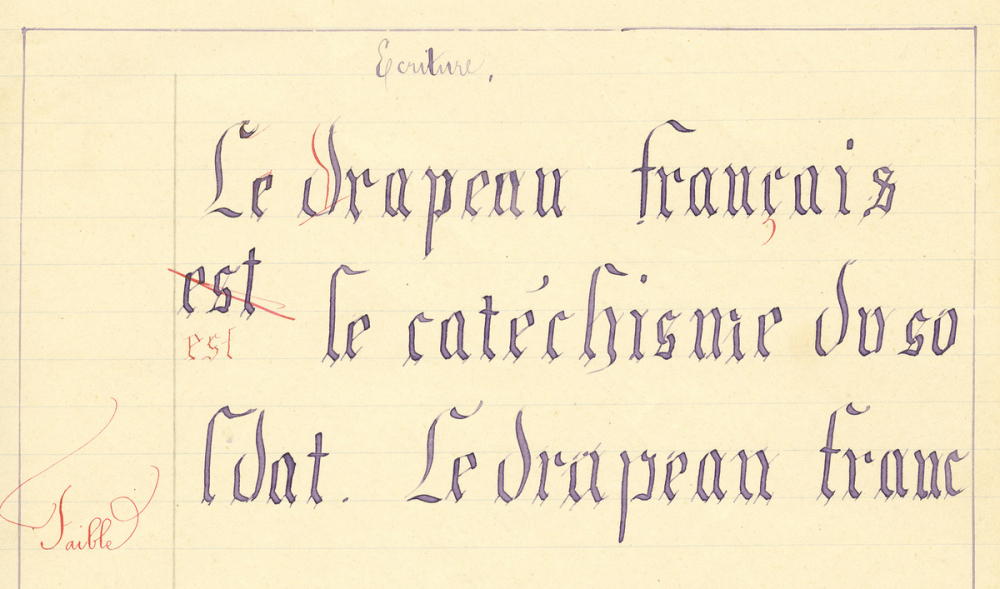 Ecriture.
Le drapeau français
est
est le catéchisme du so
ldat. Le drapeau franc
Faible